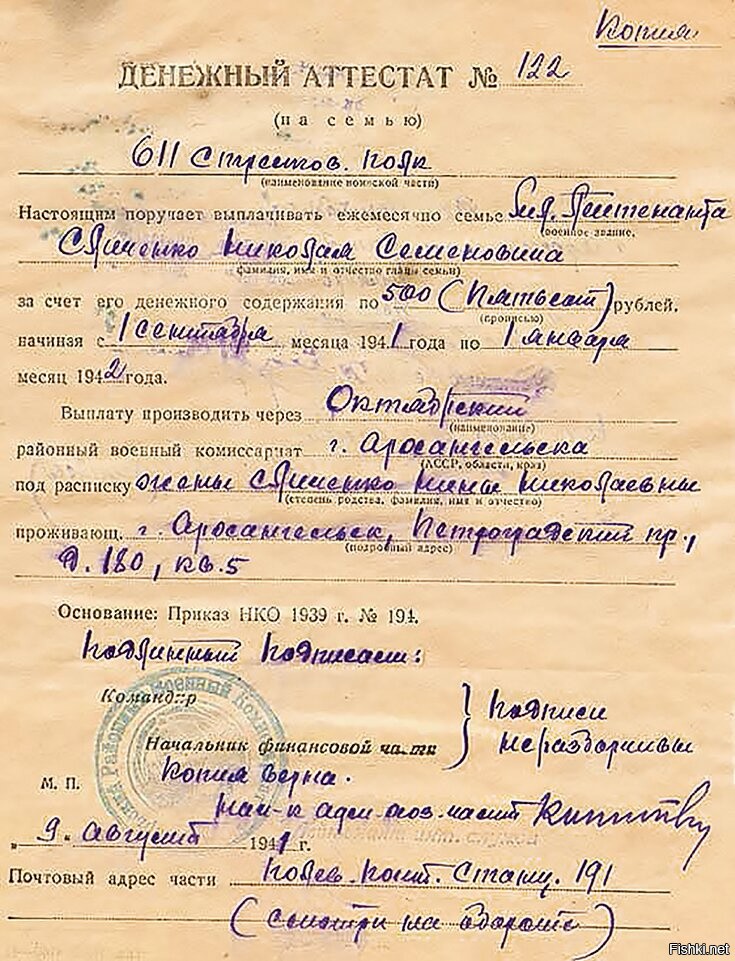 Копия
ДЕНЕЖНЫЙ АТТЕСТАТ № 122
(на семью)
611 стрелков. полк
(наименование воинской части)
Настоящим поручает выплачивать ежемесячно семье мл. лейтенанта
(военное звание,
Сличенко Николая Семеновича
фамилия, имя и отчество главы семьи)
за счет его денежного содержания по 500 (Пятьсот) рублей,
(прописью)
начиная с 1 сентября месяца 1941 года по 1 января
месяц 1942 года.
Выплату производить через Октябрьский
(наименование)
районный военный комиссариат г. Архангельска
(АССР, области, края)
под расписку жены Сличенко Нины Николаевны
(степень родства, фамилия, имя и отчество)
проживающ. г. Архангельск, Петроградский пр.,
(подробный адрес)
д. 180, кв. 5
Основание: Приказ НКО 1939 г. № 194.
Подлинный подписали:
Командир
Начальник финансовой части } подписи неразборчивы
Копия верна.
М. П.
Нач-к адм-хоз. части
„9" августа 1941 г.
Почтовый адрес части Полев. почт. станц. 191
(смотри на обороте)
Fishki.net